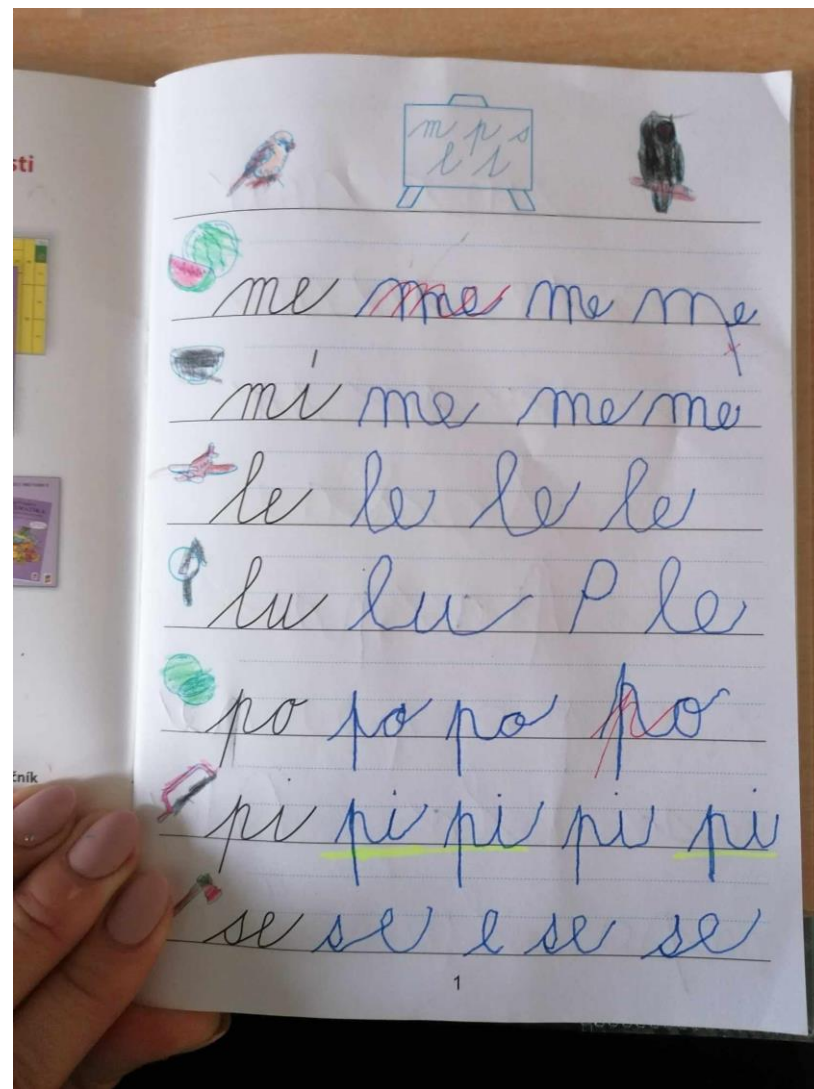 sti
m p s
l t
me me me me
mí me me me
le le le le
lu lu P le
po po po po
pi pi pi pi pi
se se e se se
čník
1